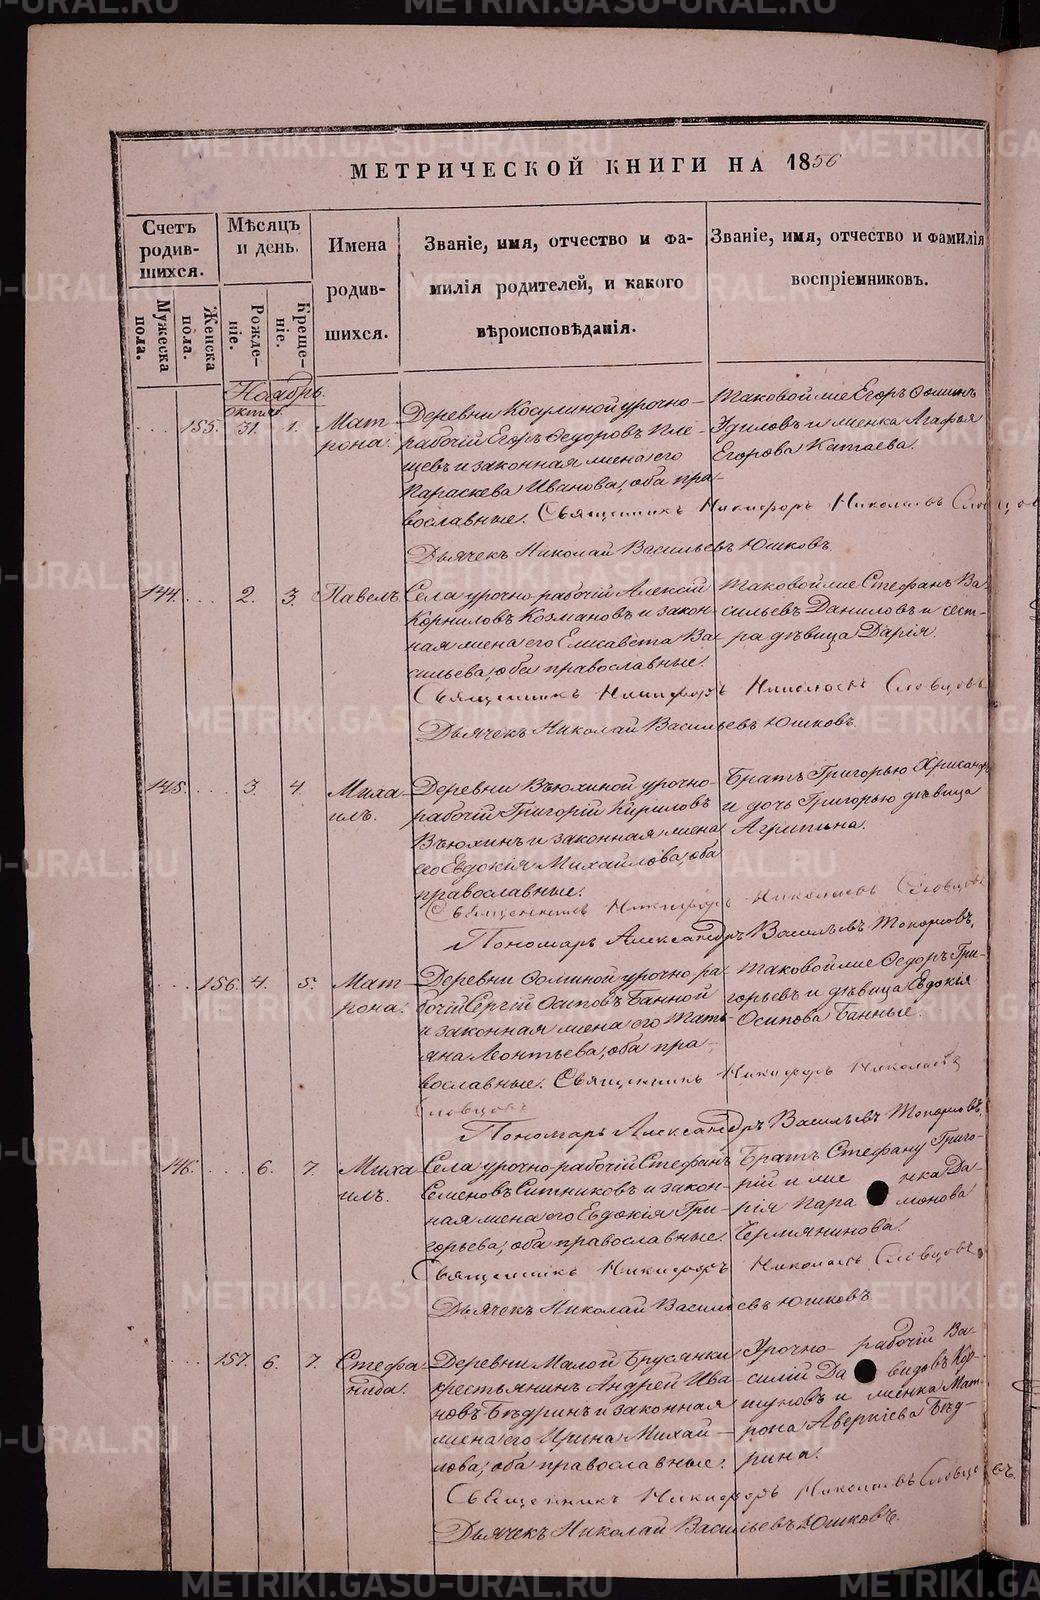 МЕТРИЧЕСКОЙ КНИГИ НА 1856
Счетъ родив-шихся.
Мужеска пола.
Женска пола.
Мѣсяцъ и день.
Рожде-ніе.
Креще-ніе.
Имена родив-шихся.
Званіе, имя, отчество и фа-
милія родителей, и какого
вѣроисповѣданія.
Званіе, имя, отчество и фамилія
воспріемниковъ.
Ноябрь.
155. 31. 1. Мат-
рона.
Деревни Косулиной урочно-
рабочій Егоръ Ѳедоровъ Пле-
щевъ и законная жена его
Параскева Иванова, оба пра-
вославные. Священникъ Никифоръ Николаевъ Словцовъ
Дьячекъ Николай Васильевъ Юшковъ.
Таковой же Егоръ Ѳоминъ
Удиловъ и женка Агафья
Егорова Катаева.
144. 2. 3. Павелъ.
Села урочно-рабочій Алексій
Корниловъ Козмановъ и закон-
ная жена его Елисавета Ва-
сильева, оба православные.
Священникъ Никифоръ Николаевъ Словцовъ
Дьячекъ Николай Васильевъ Юшковъ.
Таковой же Стефанъ Ва-
сильевъ Даниловъ и сест-
ра дѣвица Дарія.
145. 3. 4. Миха-
илъ.
Деревни Вьюхиной урочно-
рабочій Григорій Кириловъ
Вьюхинъ и законная жена
его Евдокія Михайлова, оба
православные.
Священникъ Никифоръ Николаевъ Словцовъ
Пономарь Александръ Васильевъ Топорковъ.
Братъ Григорью Хрисанфъ
и дочь Григорью дѣвица
Агрипина.
156. 4. 5. Мат-
рона.
Деревни Ѳоминой урочно-ра-
бочій Сергій Осиповъ Банной
и законная жена его Тать-
яна Леонтьева, оба пра-
вославные. Священникъ Никифоръ Николаевъ
Словцовъ
Пономарь Александръ Васильевъ Топорковъ.
Таковой же Ѳедоръ Гри-
горьевъ и дѣвица Евдокія
Осипова Банные.
146. 6. 7. Миха
илъ.
Села урочно-рабочій Стефанъ
Семеновъ Ситниковъ и закон-
ная жена его Евдокія Гри-
горьева, оба православные.
Священникъ Никифоръ Николаевъ Словцовъ
Дьячекъ Николай Васильевъ Юшковъ
Братъ Стефану Григо-
рій и женка Да-
рія Парамонова
Чермянинова.
157. 6. 7. Стефа-
нида.
Деревни Малой Брусянки
крестьянинъ Андрей Ива-
новъ Бѣдринъ и законная
жена его Ирина Михай-
лова, оба православные.
Священникъ Никифоръ Николаевъ Словцовъ.
Дьячекъ Николай Васильевъ Юшковъ.
Урочно-рабочій Ва-
силій Давидовъ
и женка Мат-
рона Аверкіева Бѣд-
рина.
METRIKI.GASU-URAL.RU